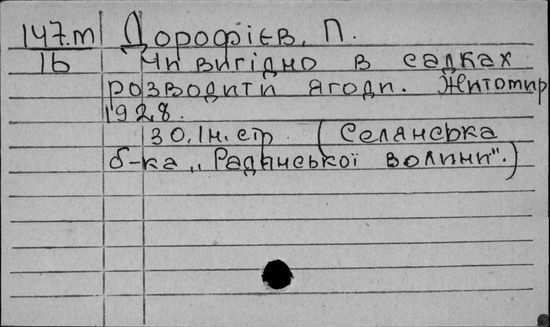 147.m Дорофієв, П.
16 Чи вигідно в садках
розводити ягоди. Житомир
1928.
30, Ін. стр. (Селянська
б-ка „Радянської Волини".)